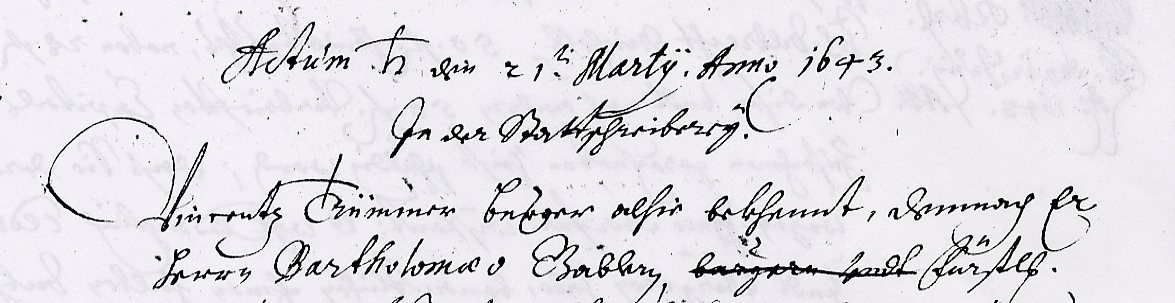 Actum ♄ den 21ti Martÿ. Anno 1643.
In der Stattschreibereÿ.
Vincentz Trümmer burger alhie bekhennt, demnach Er
Herrn Bartholomæo Bäblern, burgern undt Fürstl.